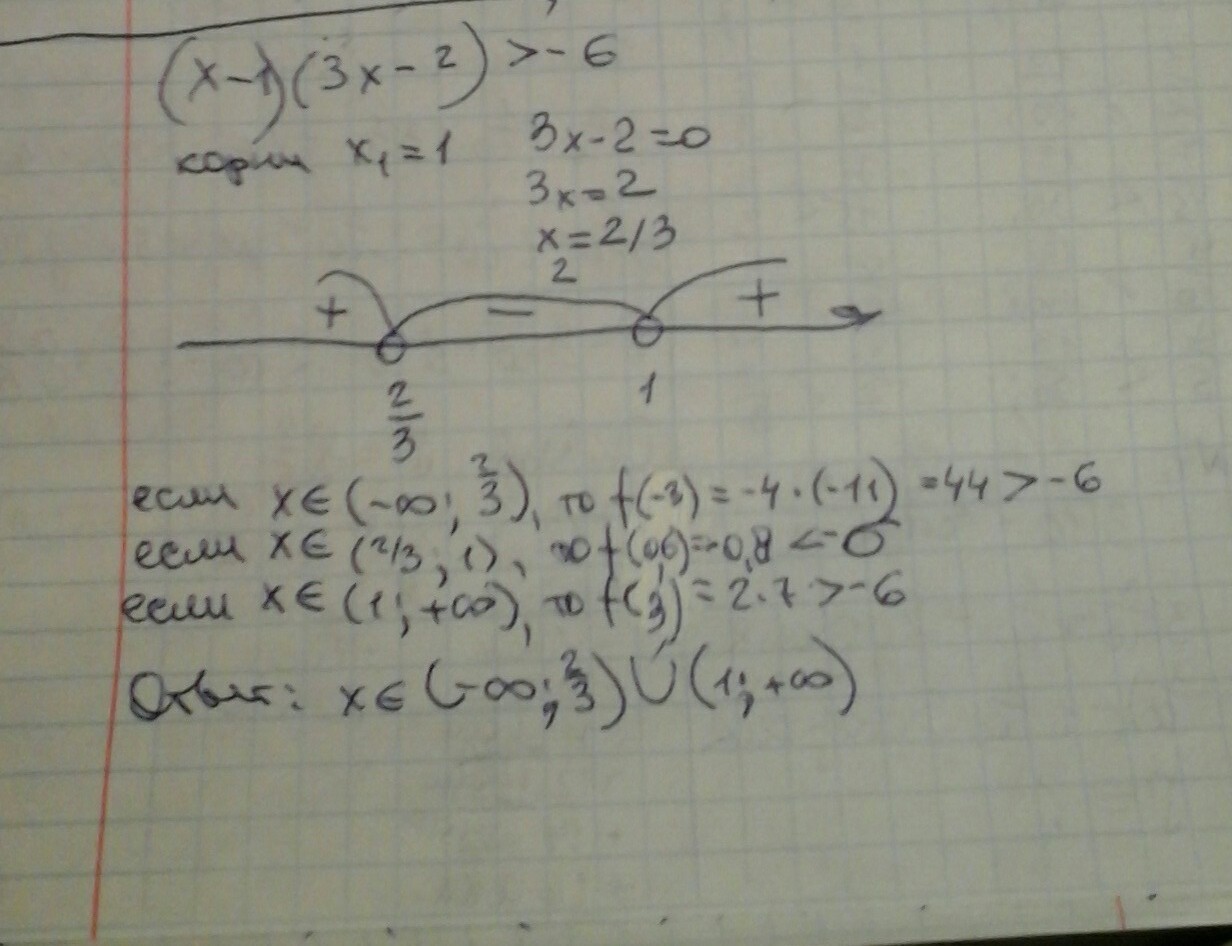 (x-1)(3x-2) > -6
корни x₁=1 3x-2=0
3x=2
x=2/3
2
+ − +
2/3 1
если x∈(-∞; 2/3), то f(-3) = -4·(-11) =44 > -6
если x∈ (2/3; 1), то
если x∈ (1; +∞), то f(3) = 2·7 > -6
Ответ: x∈ (-∞; 2/3)∪(1; +∞)